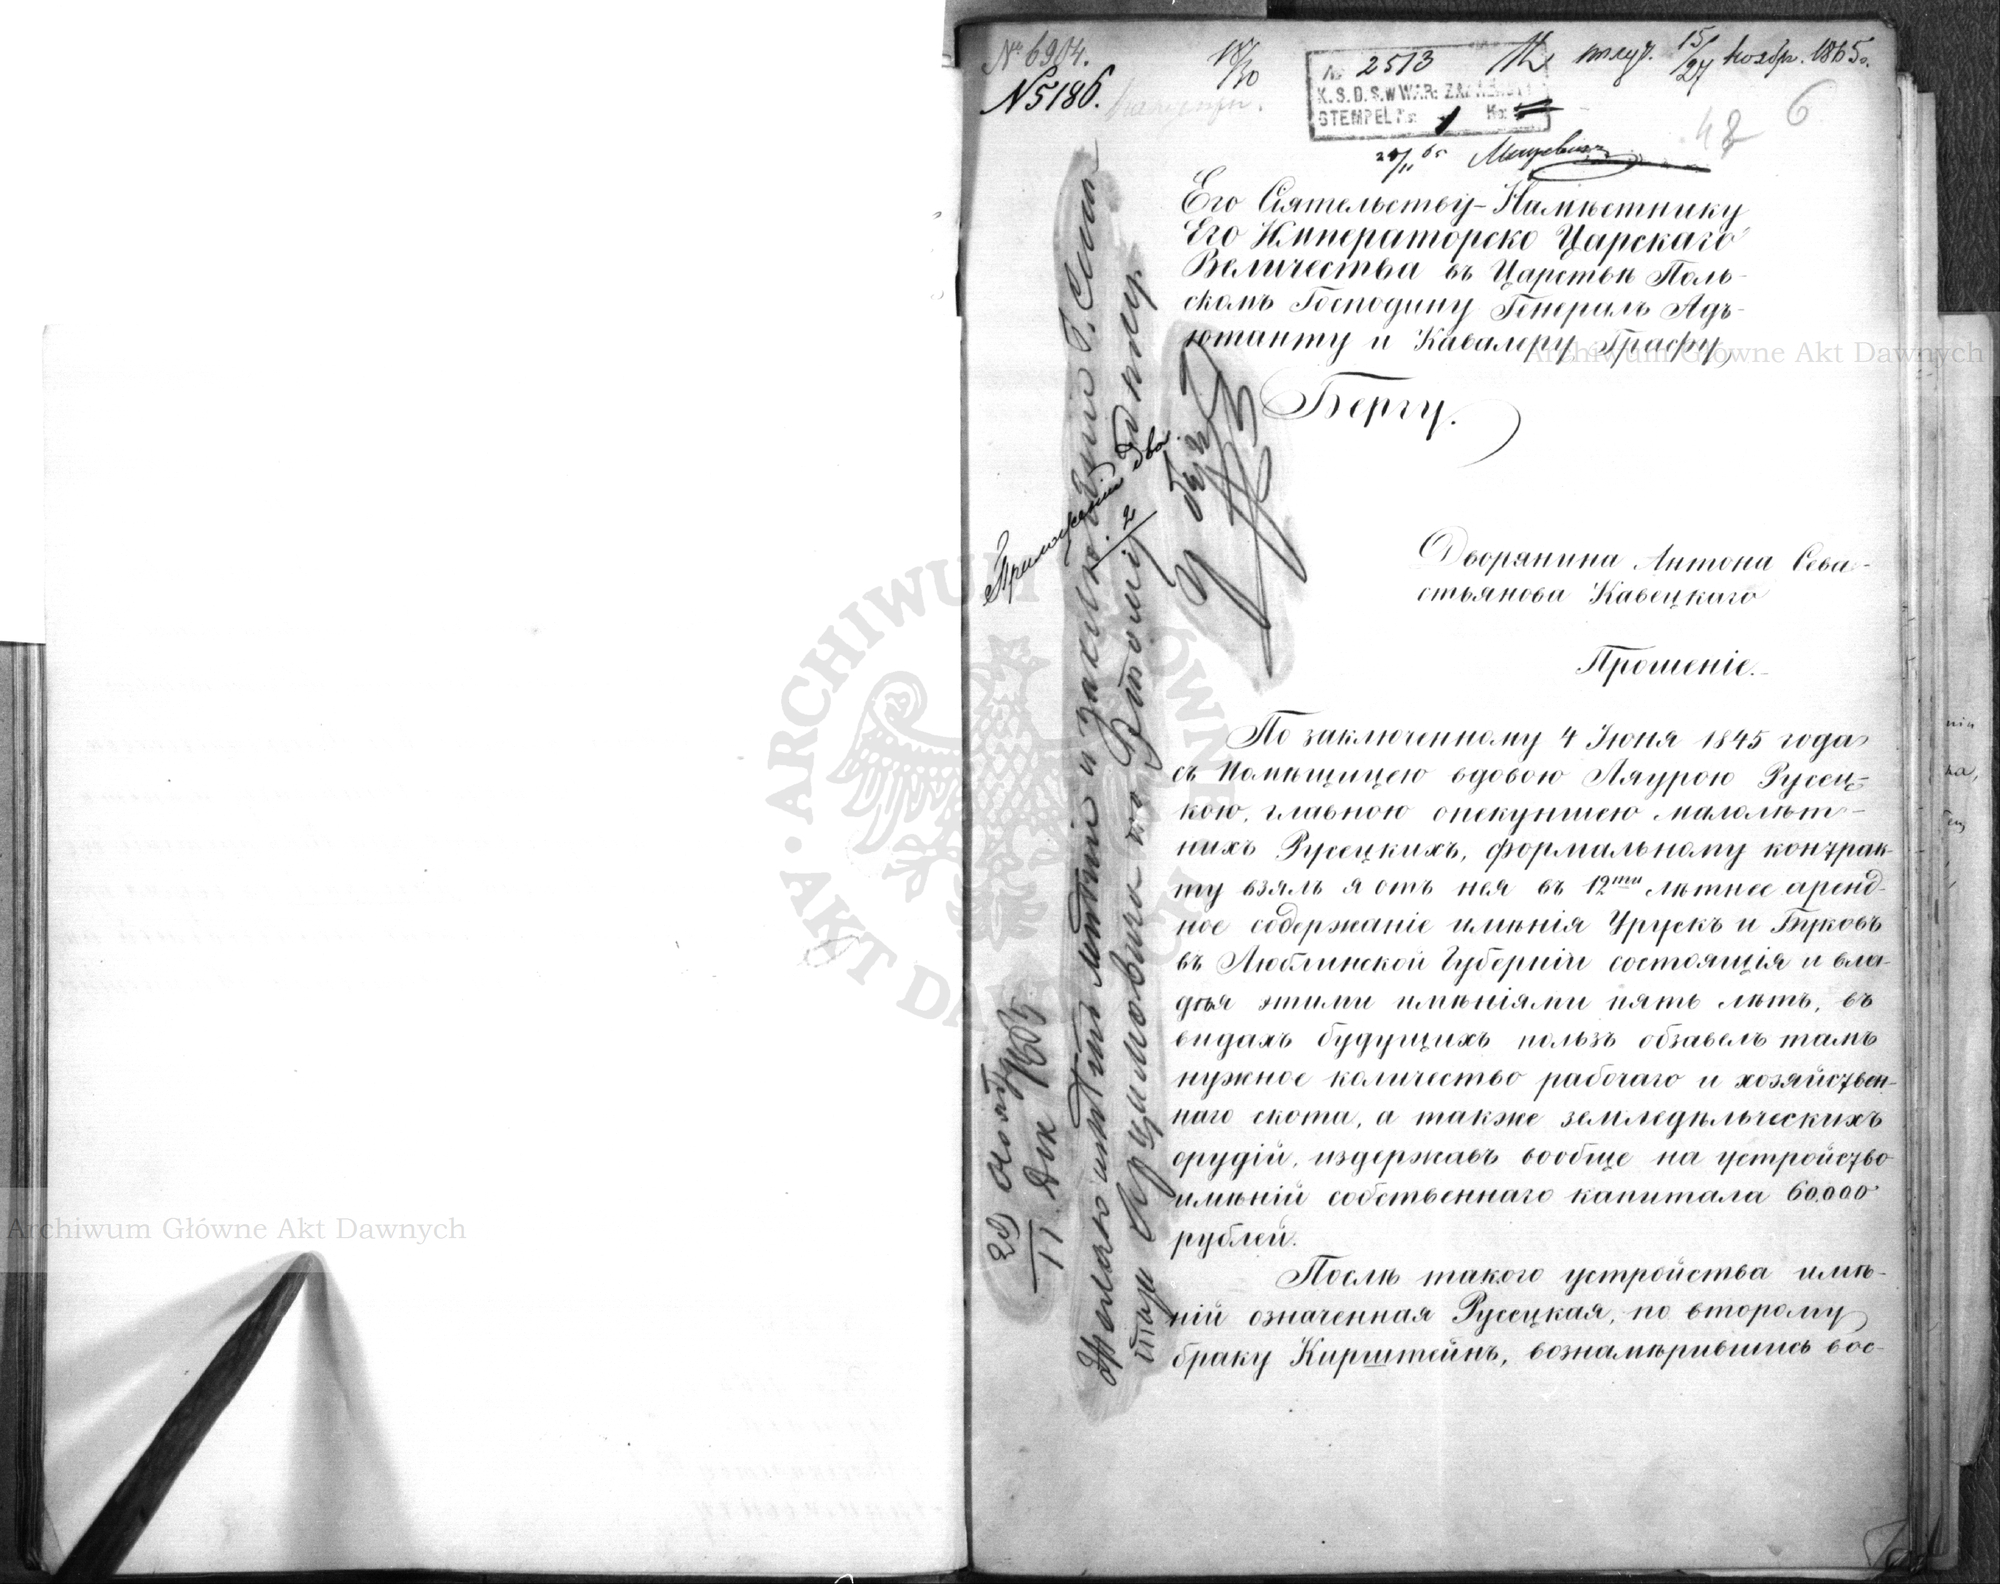 № 6904.
№ 5186.
18/30
получ. 15/27 ноябр. 1865 г.
№ 2513
K.S.D.S. w WAR: ZA
STEMPEL № 1 Ko:
48 6
Его Сіятельству Намѣстнику
Его Императорско Царскаго
Величества въ Царствѣ Поль-
скомъ Господину Генералъ Адъ-
ютанту и Кавалеру Графу
Бергу.
Приложеній два.
2
Дворянина Антона Сева-
стьянова Кавецкаго
Прошеніе.
По заключенному 4 Іюня 1845 года
съ Помѣщицею вдовою Лаурою Русец-
кою, главною опекуншею малолѣт-
нихъ Русецкихъ, формальному контрак-
ту взялъ я отъ нея въ 12ти лѣтнее аренд-
ное содержаніе имѣнія Урускъ и Буковъ
въ Люблинской Губерніи состоящія и вла-
дѣя этими имѣніями пять лѣтъ, въ
видахъ будущихъ пользъ обзавелъ тамъ
нужное количество рабочаго и хозяйствен-
наго скота, а также земледѣльческихъ
орудій, издержавъ вообще на устройство
имѣній собственнаго капитала 60.000
рублей.
Послѣ такого устройства имѣ-
ній означенная Русецкая, по второму
браку Кирштейнъ, вознамѣрившись вос-
Archiwum Główne Akt Dawnych
Archiwum Główne Akt Dawnych
ARCHIWUM GŁÓWNE AKT DAWNYCH